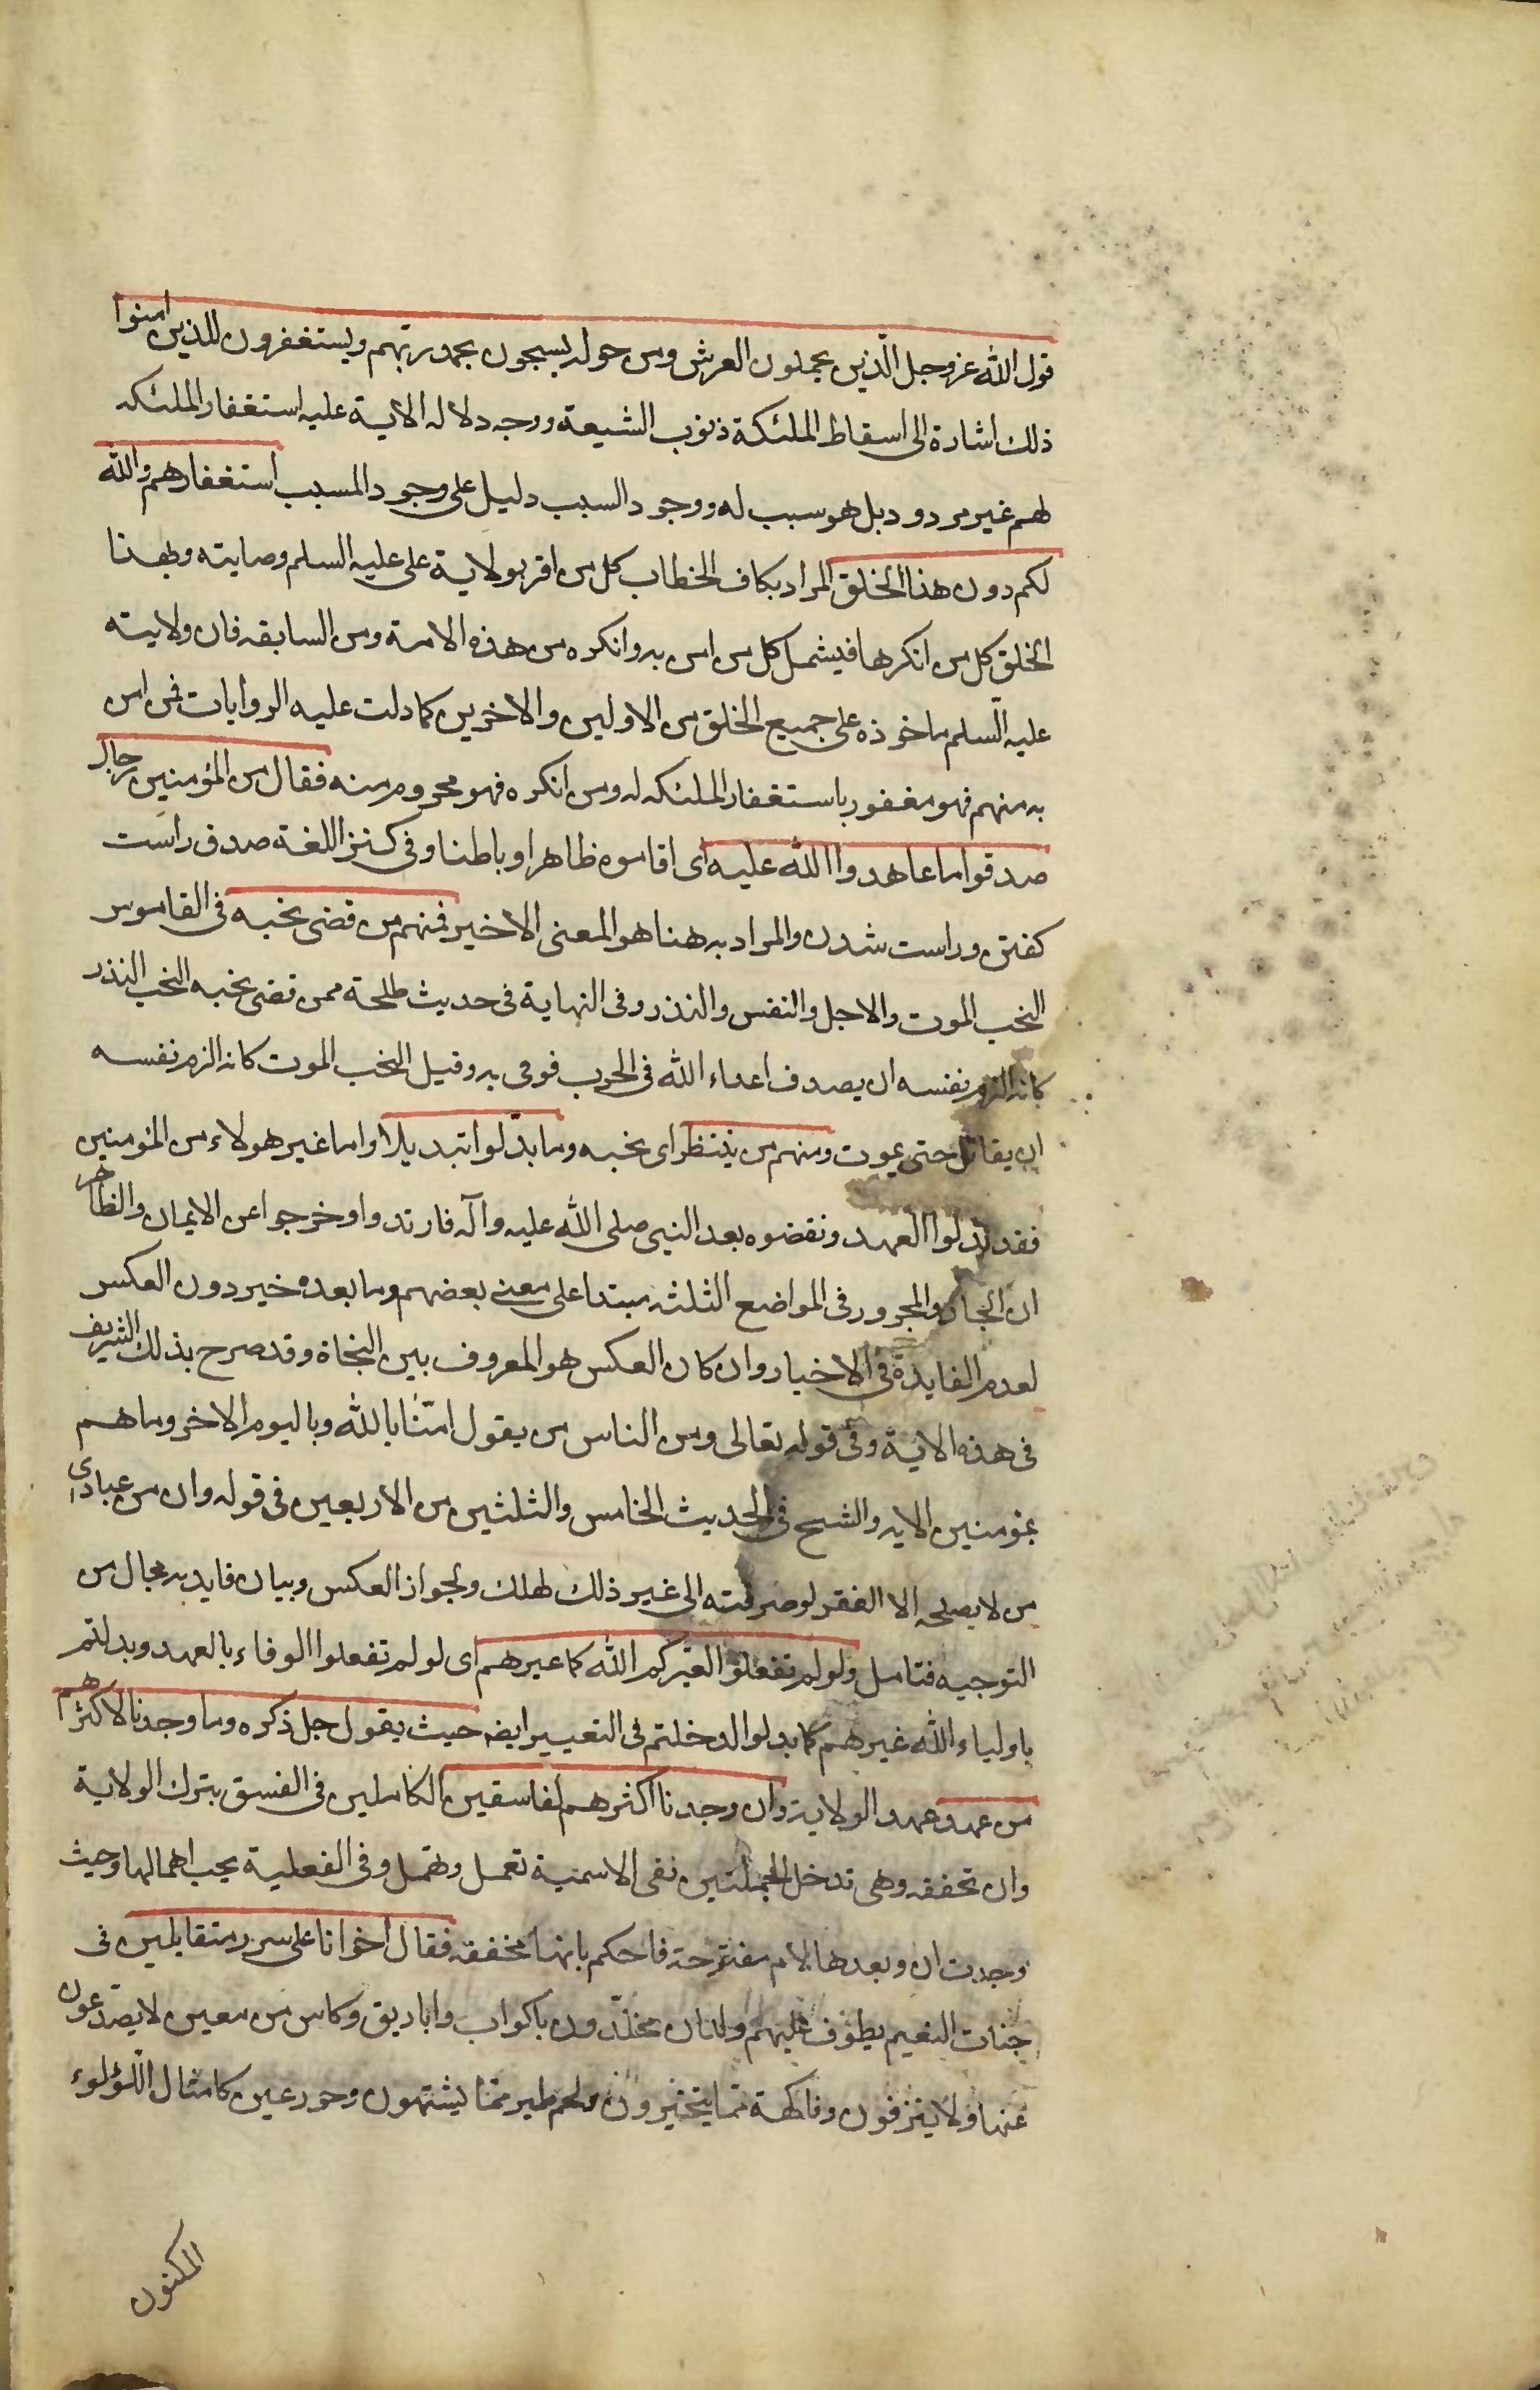 قول الله عز وجل الّذين يحملون العرش ومن حوله يسبحون بحمد ربهم ويستغفرون للذين امنوا
ذلك اشارة الى اسقاط الملئكة ذنوب الشيعة ووجه دلاله الاية عليه استغفار الملئكه
لهم غير مردود بل هو سبب له ووجود السبب دليل على وجود المسبب استغفارهم والله
لكم دون هذا الخلق المراد بكاف الخطاب كل من اقر بولاية على عليه السلم وصايته وبهذا
الخلق كل من انكرها فيشمل كل من امن به وانكره من هذه الامة ومن السابقه فان ولايته
عليه السّلم ماخوذه على جميع الخلق من الاولين والاخرين كما دلت عليه الروايات فمن امن
به منهم فهو مغفور باستغفار الملئكه له ومن انكره فهو محروم منه فقال من المؤمنين رجال
صدقوا ما عاهدوا الله عليه اى اقاموه ظاهرا وباطنا وفى كنز اللغة صدق راست
كفتن وراست شدن والمراد به هنا هو المعنى الاخير فمنهم من قضى نحبه فى القاموس
النحب الموت والاجل والنفس والنذر وفى النهاية فى حديث طلحة ممن قضى نحبه النحب النذر
كانه الزم نفسه ان يصدق اعداء الله فى الحرب فوفى به وقيل النحب الموت كانه الزم نفسه
ان يقاتل حتى يموت ومنهم من ينتظر اى نحبه وما بدّلوا تبديلا واما غير هولاء من المؤمنين
فقد بدلوا العهد ونقضوه بعد النبى صلى الله عليه وآله فارتدوا وخرجوا عن الايمان والظاهر
ان الجار والمجرور فى المواضع الثلثه مبتدا على معنى بعضهم وما بعده خبر دون العكس
لعدم الفايدة فى الاخبار وان كان العكس هو المعروف بين النحاة وقد صرح بذلك الشريف
فى هذه الاية وفى قوله تعالى ومن الناس من يقول امنّا بالله وباليوم الاخر وما هم
بمؤمنين الايه والشيخ فى الحديث الخامس والثلثين من الاربعين فى قوله وان من عبادى
من لا يصلحه الا الفقر لو صرفته الى غير ذلك لهلك ولجواز العكس وبيان فايدته مجال من
التوجيه فتامل ولو لم تفعلوا لعيّركم الله كما عيرهم اى لو لم تفعلوا الوفاء بالعهد وبدلتم
باولياء الله غيرهم كما بدلوا لدخلتم فى التعيير ايضه حيث يقول جل ذكره وما وجدنا لاكثرهم
من عهد وعهد الولاية وان وجدنا اكثرهم لفاسقين الكاملين فى الفسق بترك الولاية
وان مخففه وهى تدخل الجملتين نفى الاسمية تعمل وتهمل وفى الفعلية يجب اهمالها وحيث
وجدت ان وبعدها لام مفتوحة فاحكم بانها مخففه فقال اخوانا على سرر متقابلين فى
جنات النعيم يطوف عليهم ولدان مخلّدون باكواب واباريق وكاس من معين لا يصدّعون
عنها ولا ينزفون وفاكهة مما يتخيرون ولحم طير ممّا يشتهون وحور عين كامثال اللؤلوء
المكنون